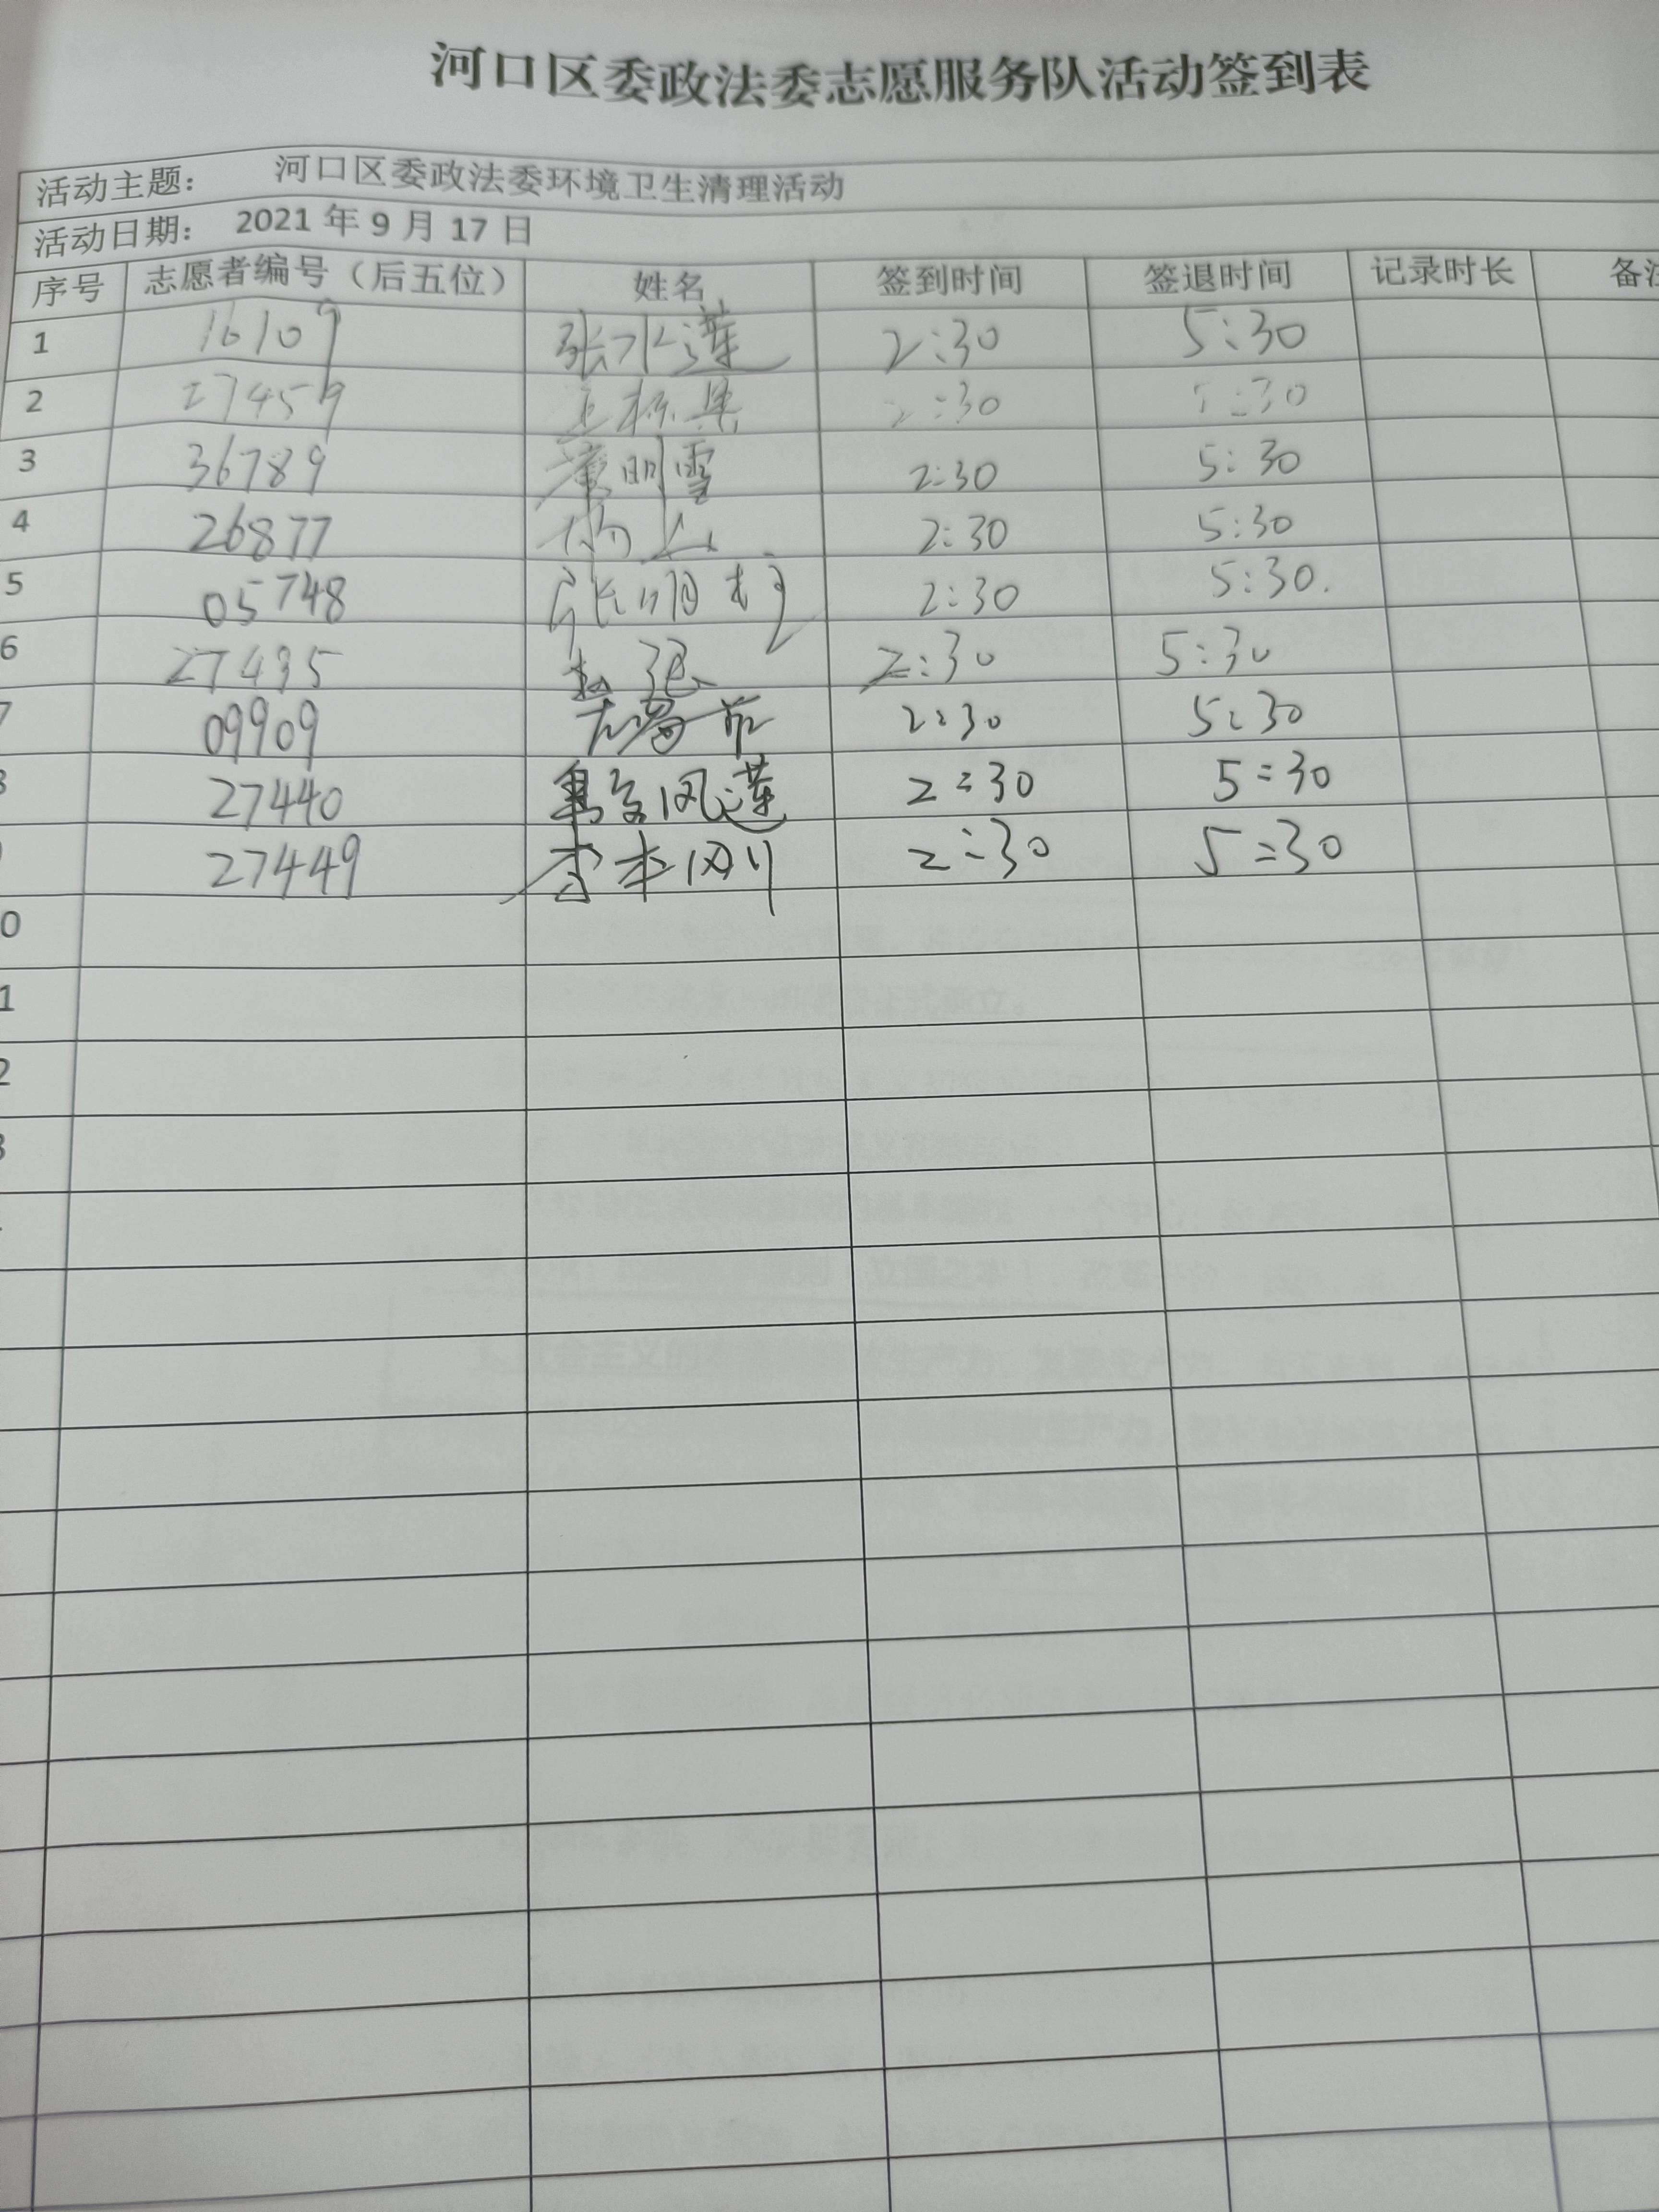 河口区委政法委志愿服务队活动签到表
活动主题： 河口区委政法委环境卫生清理活动
活动日期： 2021 年 9 月 17 日
序号 志愿者编号（后五位） 姓名 签到时间 签退时间 记录时长 备注
1 16109 张水莲 2:30 5:30
2 27459 :30 :30
3 36789 明雪 2:30 5:30
4 26877 杨 2:30 5:30
5 05748 张明 2:30 5:30.
6 27435 2:30 5:30
7 09909 2:30 5:30
8 27440 凤莲 2:30 5:30
27449 李本刚 2:30 5:30
0
1
2
3